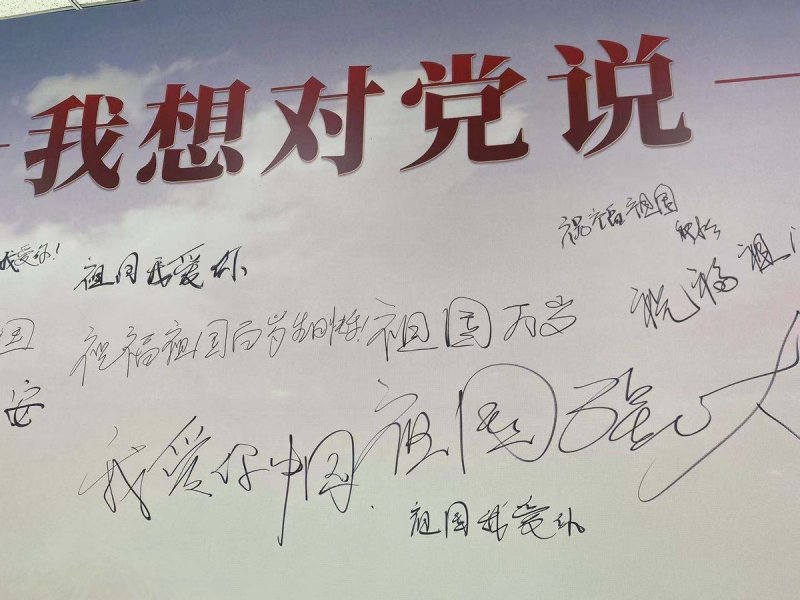 我想对党说
我爱你!
祝福祖国
祖国我爱你
祝福祖
国
祝福祖国百岁生日快乐!
祖国万岁
安
我爱你中国
祖国强大
祖国我爱你